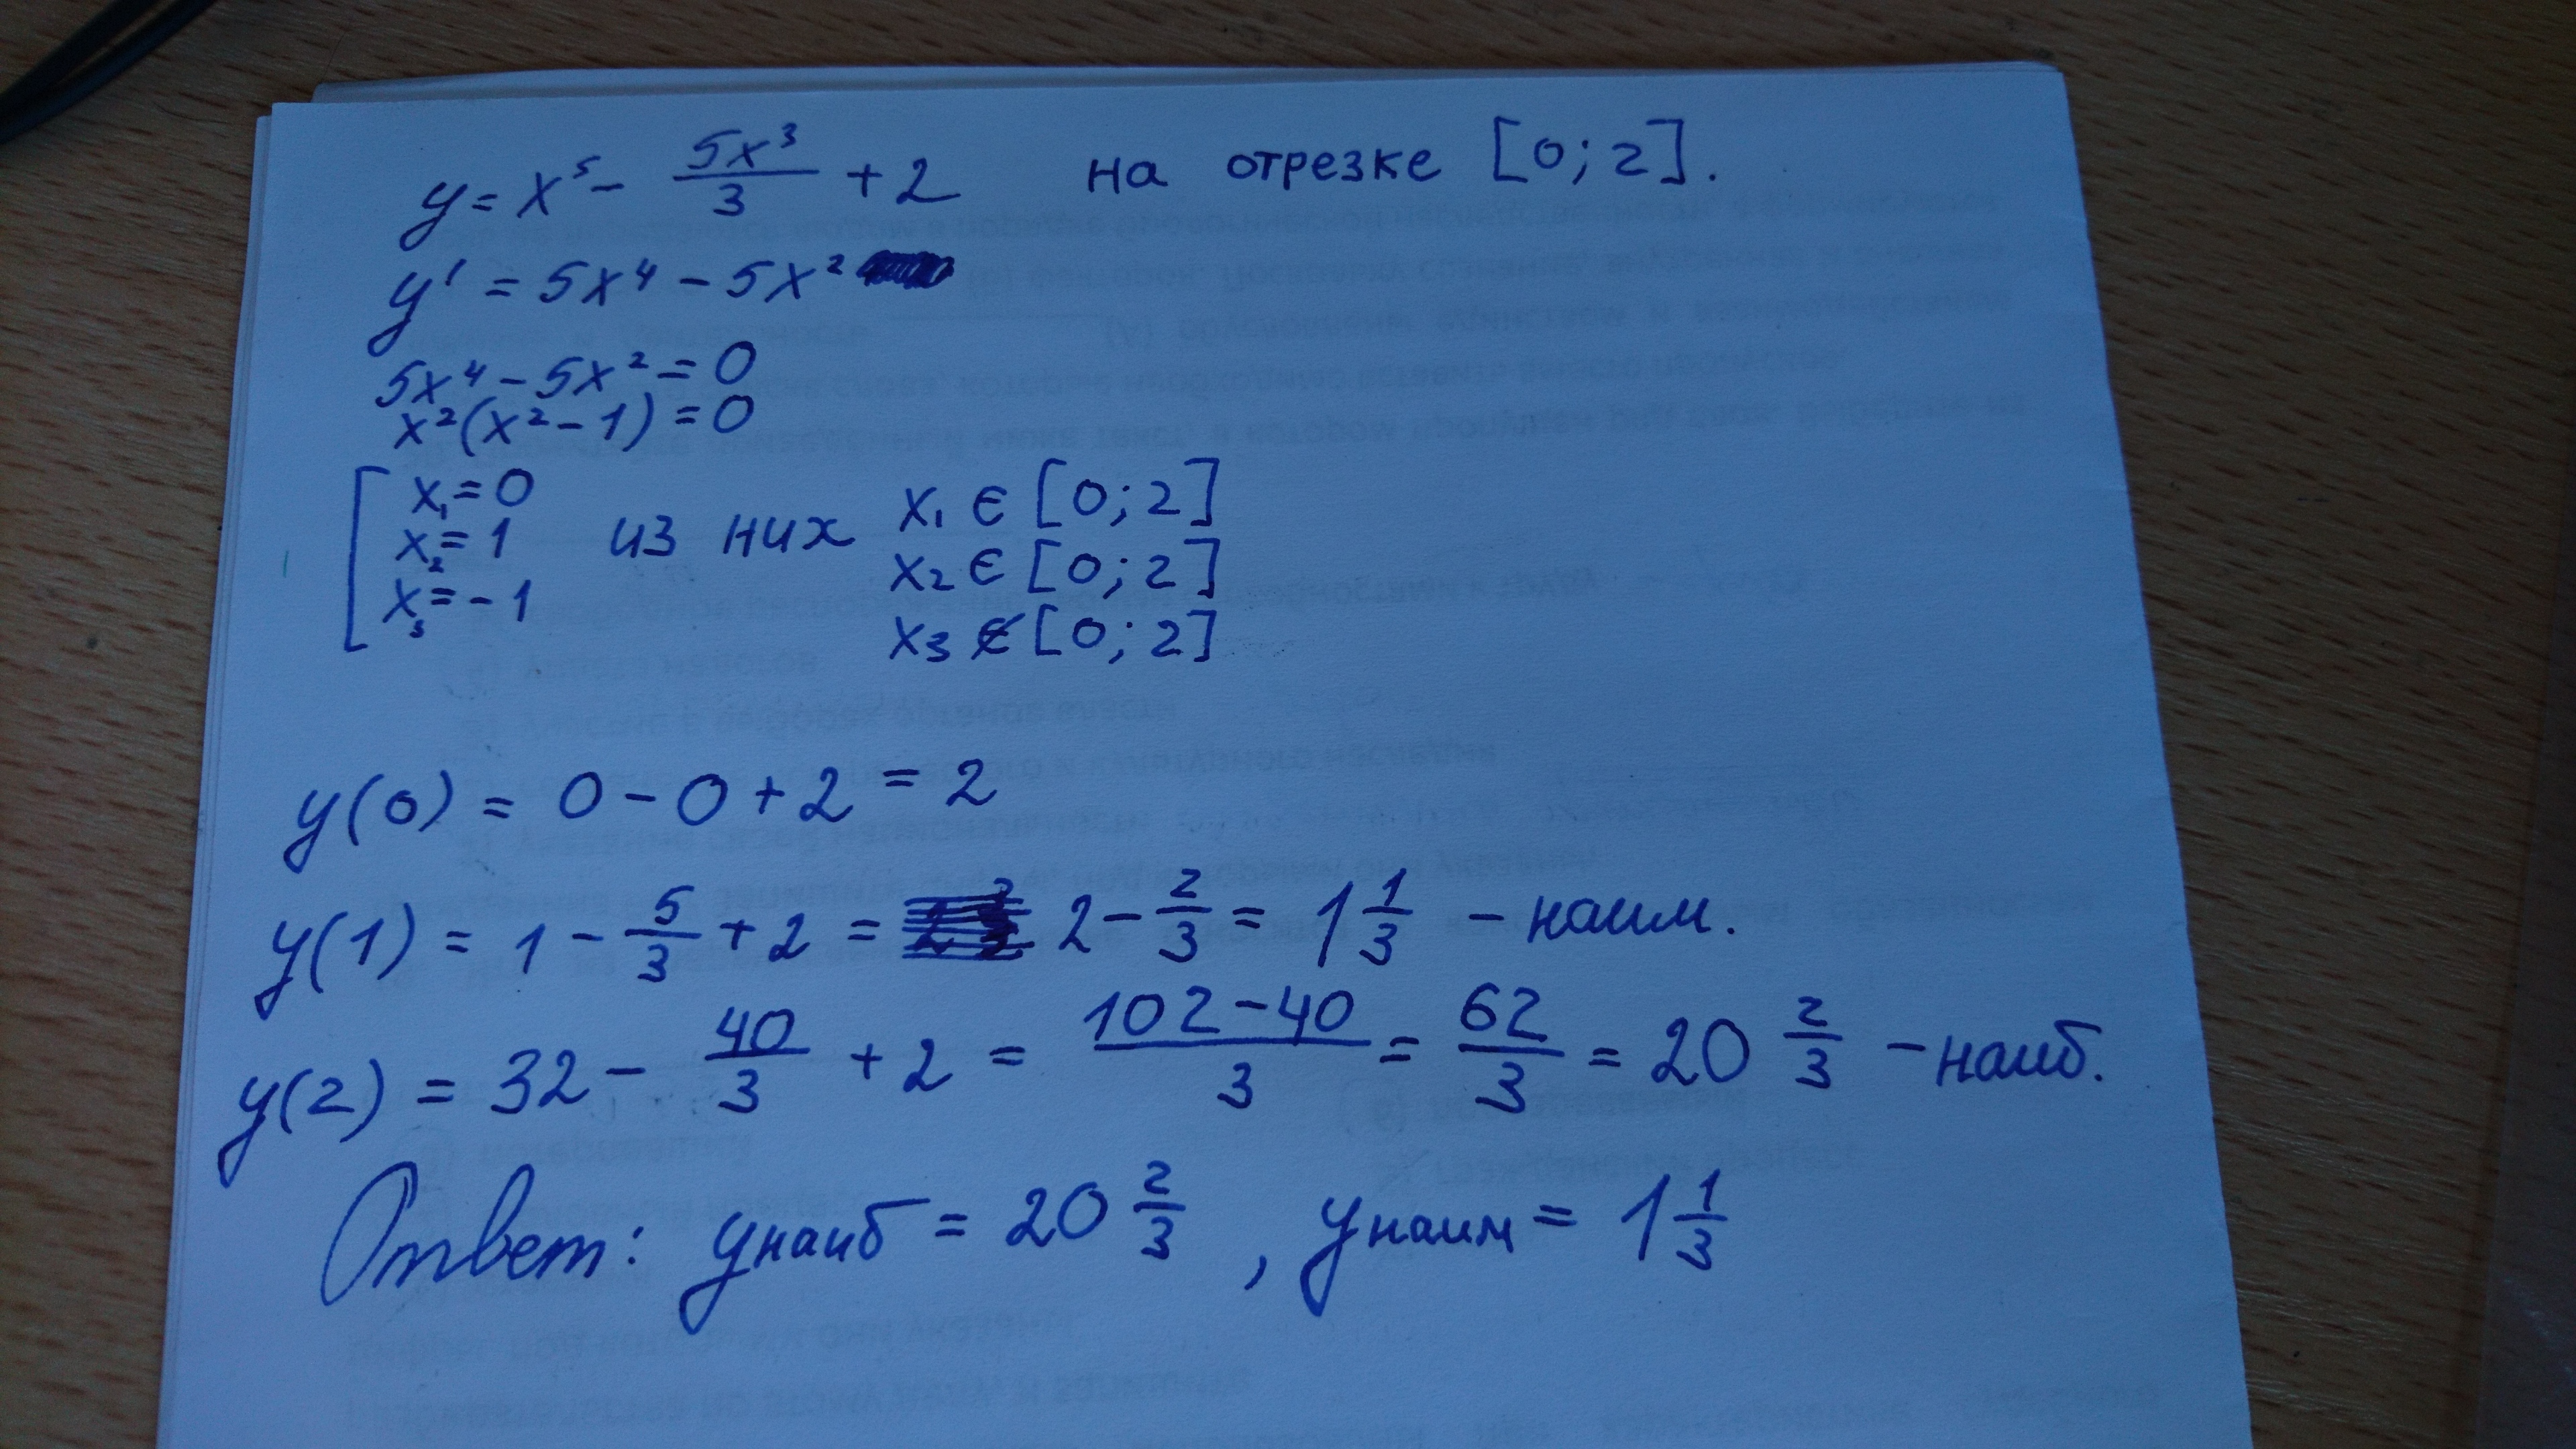 y = x⁵ - 5x³/3 + 2 на отрезке [0; 2].
y' = 5x⁴ - 5x²
5x⁴ - 5x² = 0
x²(x² - 1) = 0
x₁ = 0 из них x₁ ∈ [0; 2]
x₂ = 1 x₂ ∈ [0; 2]
x₃ = -1 x₃ ∉ [0; 2]
y(0) = 0 - 0 + 2 = 2
y(1) = 1 - 5/3 + 2 = 2 - 2/3 = 1 1/3 - наим.
y(2) = 32 - 40/3 + 2 = (102 - 40)/3 = 62/3 = 20 2/3 - наиб.
Ответ: y наиб = 20 2/3, y наим = 1 1/3